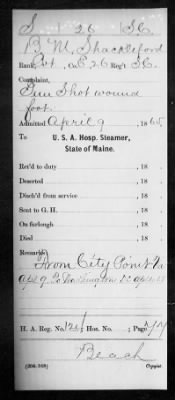 S 26 S.C.
B. M. Shackleford
Rank, Pvt, Co. E, 26 Reg't S.C.
Complaint,
Gun Shot wound
foot
Admitted April 9, 1865,
To U. S. A. Hosp. Steamer,
State of Maine.
Ret'd to duty , 18
Deserted , 18
Disch'd from service , 18
Sent to G. H. , 18
On furlough , 18
Died , 18
Remarks:
From City Point Va
Apl 9. To Washington DC
H. A. Reg. No. Hos. No. ; Page
Beach
Copyist.